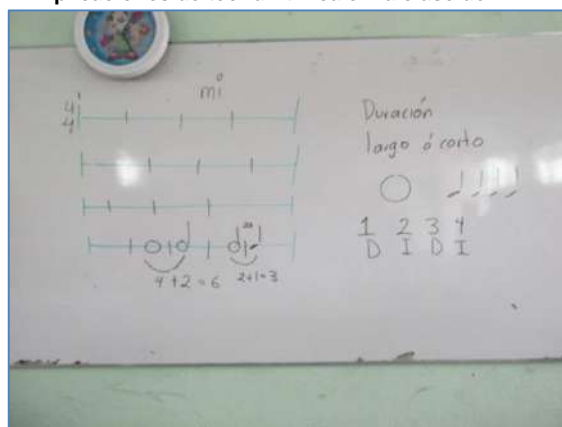 mi
4
4
4 + 2 = 6
2+1=3
Duración
largo ó corto
1 2 3 4
D I D I